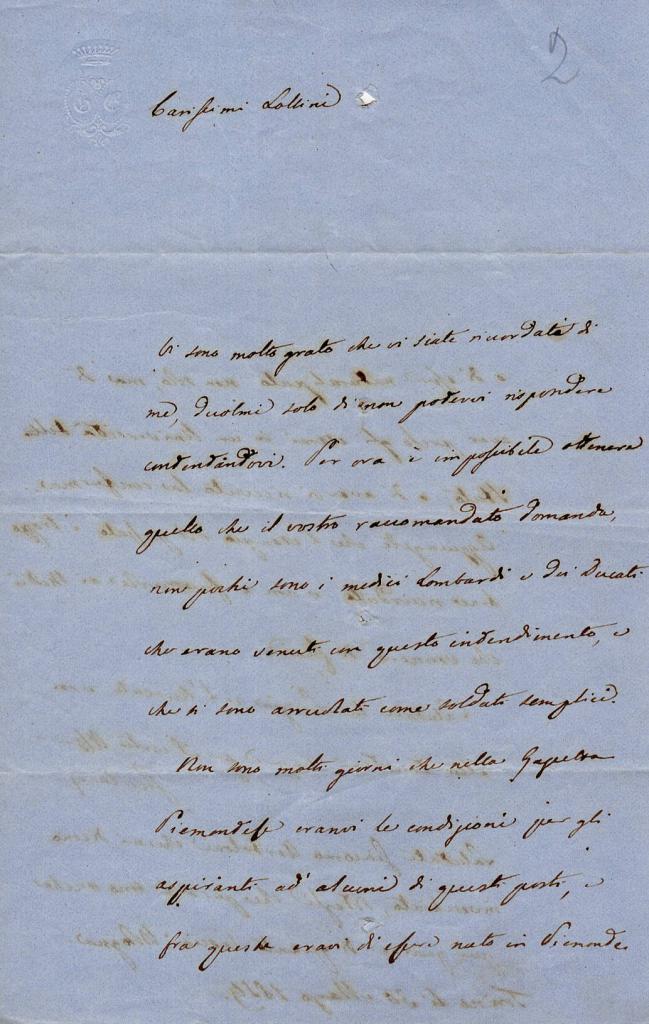 2
Carissimi Lollini
Vi sono molto grato che vi siate ricordati di
me, duolmi solo di non potervi rispondere
contentandovi. Per ora è impossibile ottenere
quello che il vostro raccomandato domanda,
non pochi sono i medici Lombardi e dei Ducati
che erano venuti con questo intendimento, e
che si sono arruolati come soldati semplici.
Non sono molti giorni che nella Gazzetta
Piemontese eranvi le condizioni per gli
aspiranti ad' alcuni di questi posti, e
fra queste eravi di essere nato in Piemonte